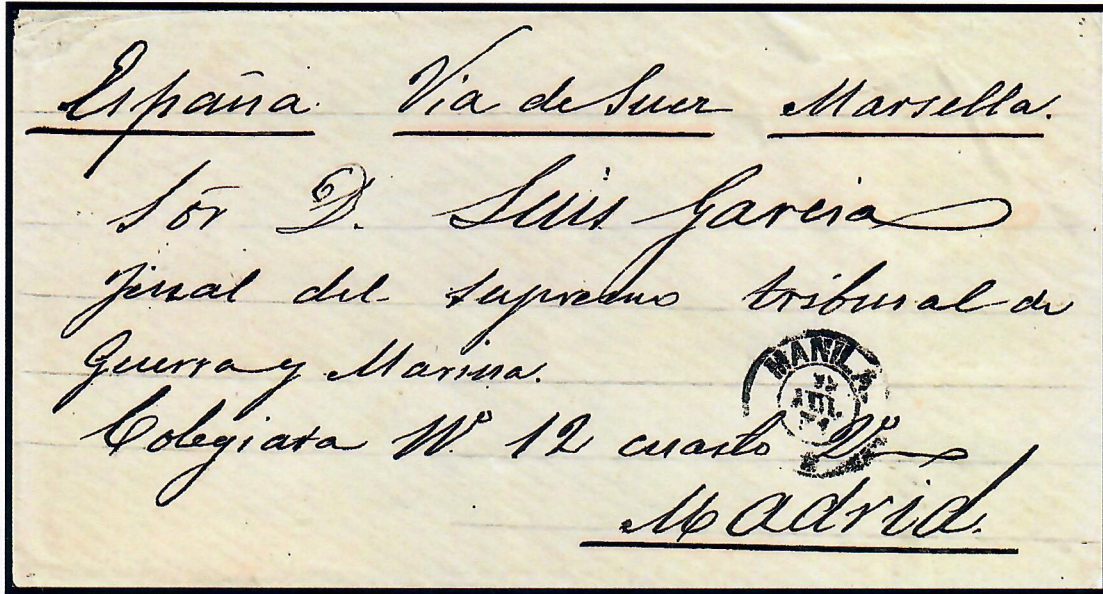 España. Via de Suez Marsella.
Sōr D. Luis Garcia
fiscal del supremo tribunal de
Guerra y Marina.
MANILA
JUL.
Colegiata Nº 12 cuarto 2º
Madrid.